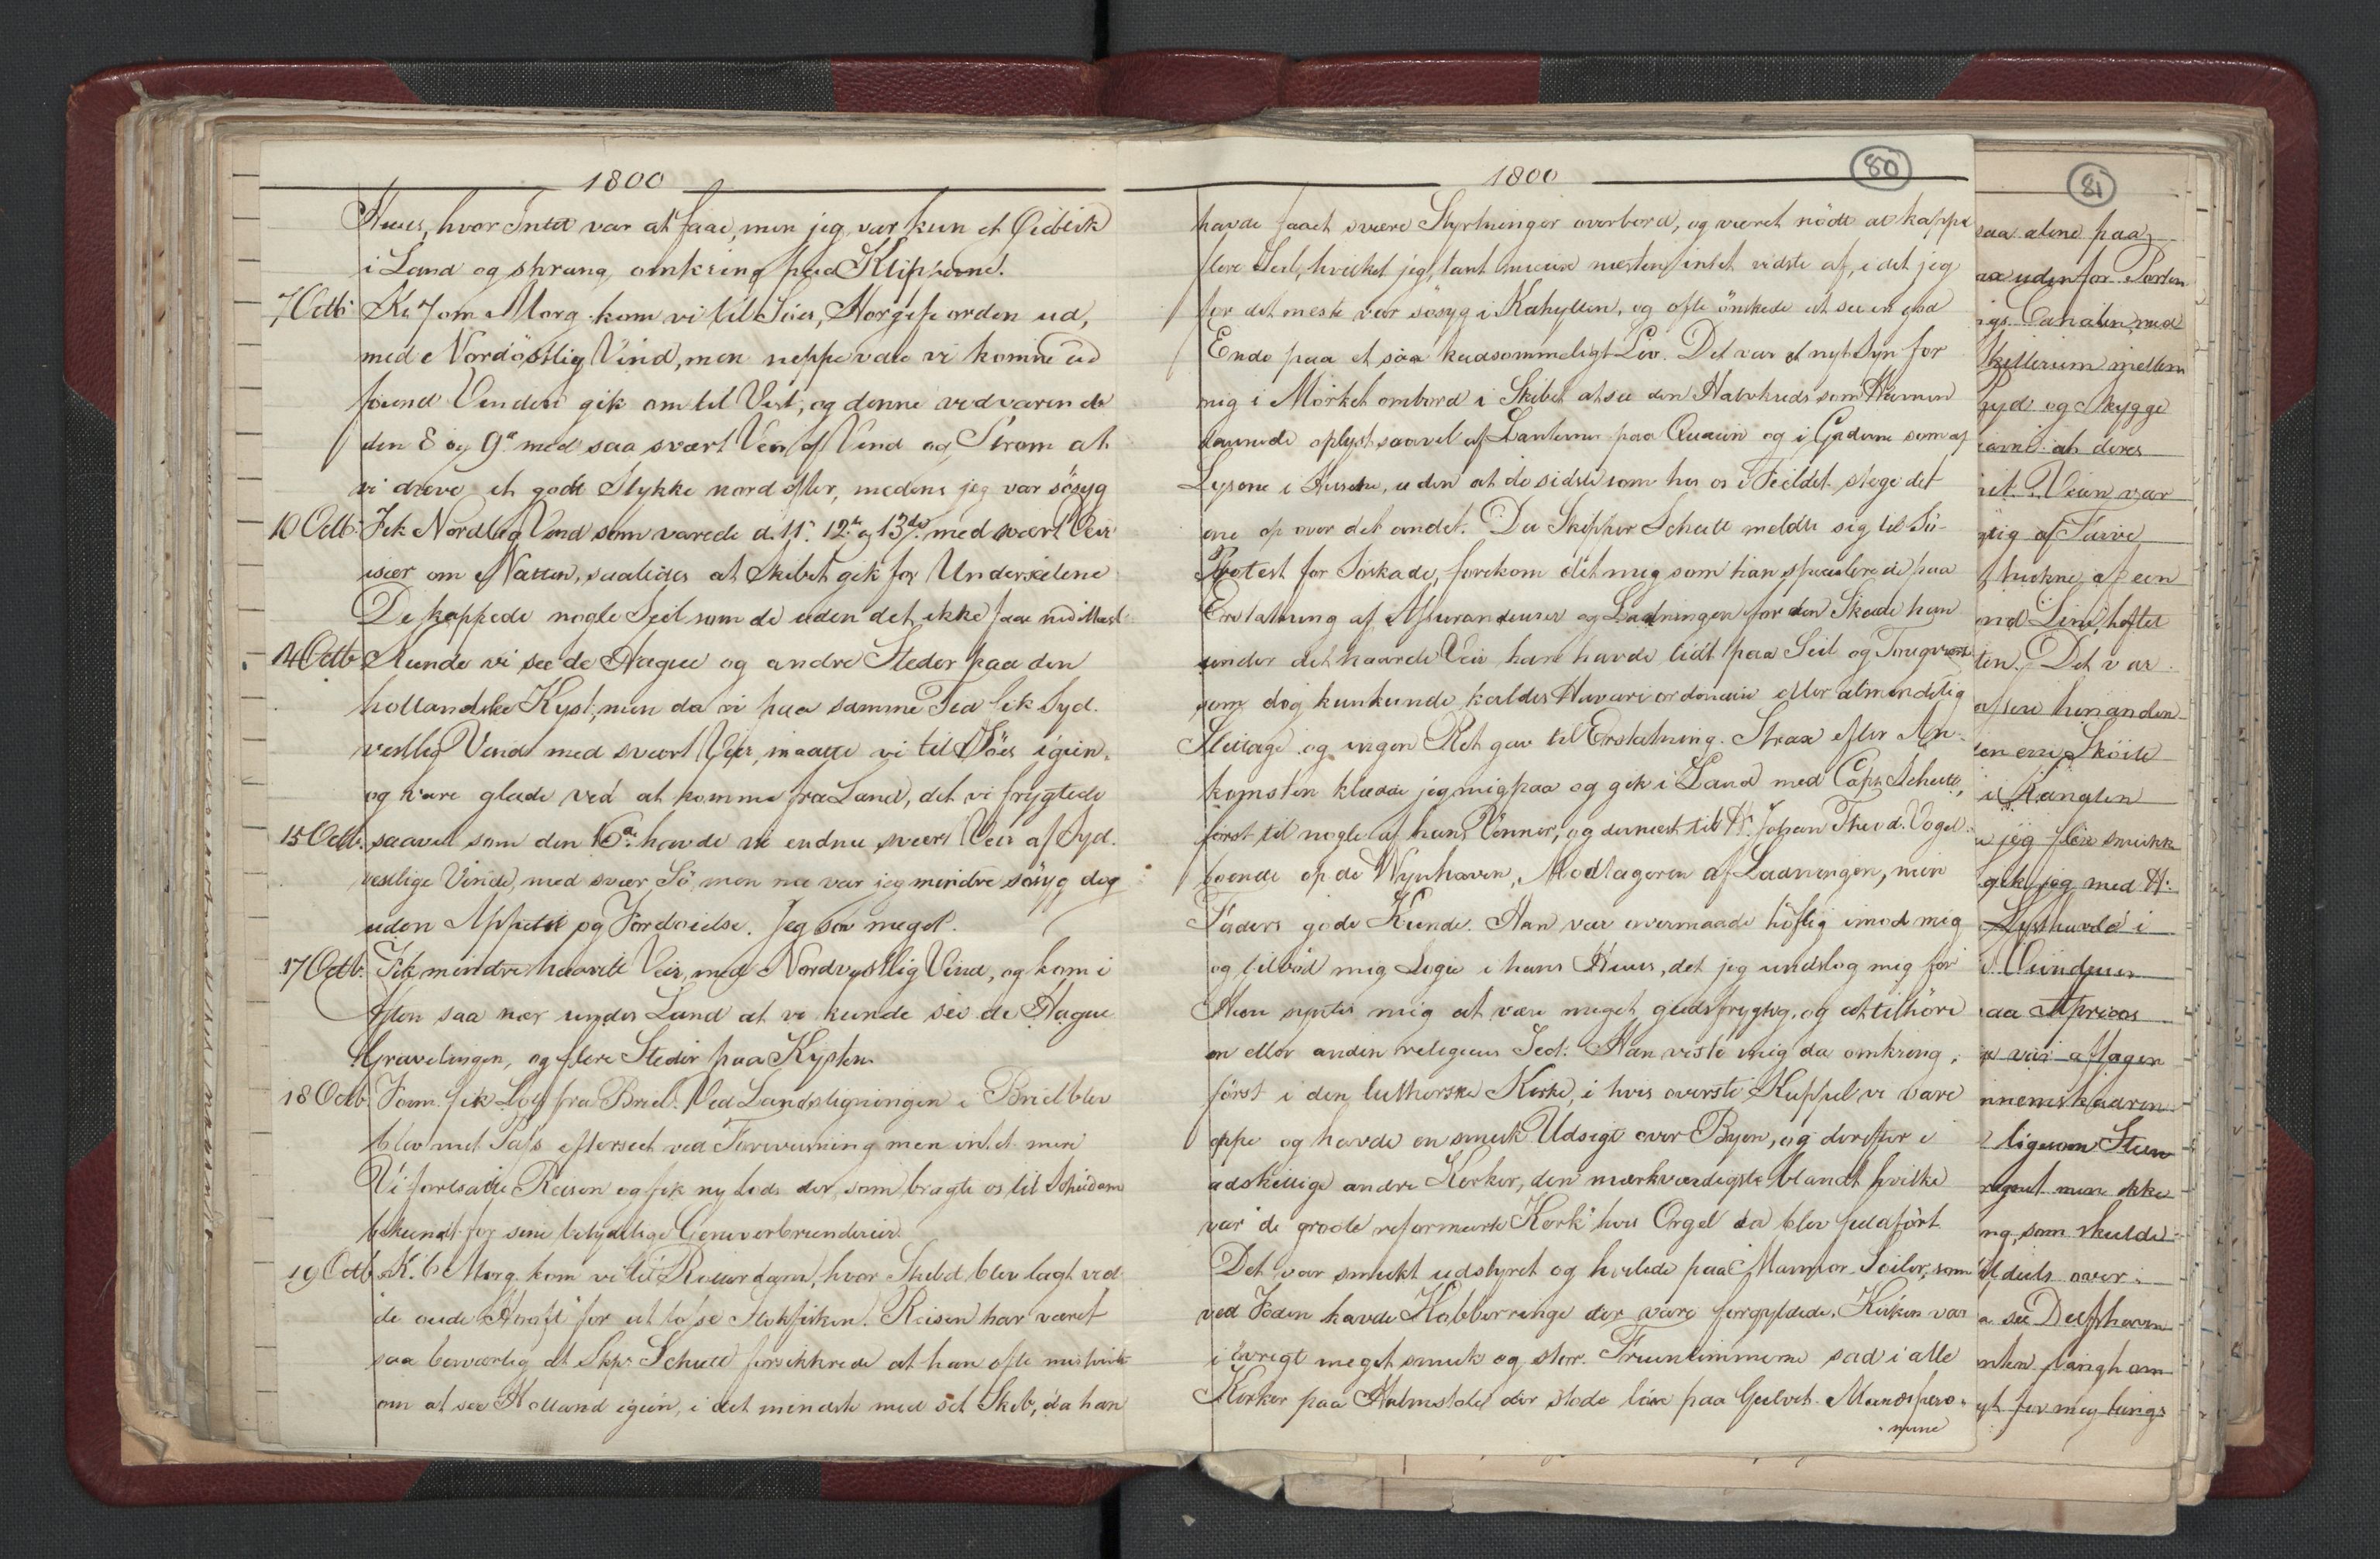 1800
Huus, hvor Intet var at faae, men jeg var kun et Öieblik
i Land og sprang omkring paa Klipperne.
7 Octb. Kl. 7 om Morg. kom vi til Söes, Norgefiorden ud,
med Nordöstlig Vind, men neppe vare vi komne ud
förend Vinden gik om til Vest, og denne vedvarende
den 8 og 9de med saa svært Veir af Vind og Ström at
vi dreve et godt Stykke nord efter, medens jeg var sösyg
10 Octb. Fik Nordlig Vind som varede d. 11. 12te og 13de med svært Veir
især om Natten, saaledes at Skibet gik for Underseilene
De kappede nogle Seil som de uden det ikke faae ned
14 Octb. Kunde vi see de Hague og andre Steder paa den
hollandske Kyst, men da vi paa samme Tid fik Syd-
vestlig Vind med svært Veir, maatte vi til Söes igien,
og vare glade ved at komme fra Land, det vi frygtede
15 Octb. saavel som den 16de havde vi endnu svært Veir af Syd-
vestlige Vinde, med svær Sö, men nu var jeg mindre sösyg dog
uden Appetit og Fordöielse. Jeg sov meget.
17 Octb. Fik mindre haardt Veir, med Nordvestlig Vind, og kom i
Aften saa nær under Land at vi kunde see de Hague
Gravelingen, og flere Steder paa Kysten.
18 Octb. Form. fik Lods fra Briel. Ved Landstigningen i Briel blev
blev mit Pass efterseet ved Forevisning men intet mere
Vi fortsatte Reisen og fik ny Lods der, som bragte os til Schiedam
bekiendt for sine betydelige Geneverbrænderier.
19 Octb. Kl. 6 Morg. kom vi til Rotterdam, hvor Skibet blev lagt ved
"de oude Hooft" for at losse Stokfisken. Reisen har været
saa besværlig at Skpr. Schutt forsikkrede at han ofte mistvivlede
om at see Holland igien, i det mindste med sit Skib, da han
1800
80
havde faaet svære Styrtninger overbord, og været nödt at kappe
flere Seil, hvilket jeg, næsten intet vidste af, i det jeg
for det meste var sösyg i Kahytten, og ofte önskede at see en god
Ende paa et saa kedsommeligt Liv. Det var et nyt Syn for
mig i Mörket ombord i Skibet at see den Halvkreds som Havnen
dannede oplyst saavel af Lanterner paa Quaien og i Gaderne som af
Lysene i Husene, uden at de sidste som hos os i Feildet stege det
ene op over det andet. Da Skipper Schutt meldte sig til Sö-
Protest for Söskade, forekom det mig som han speculerede paa
Erstatning af Assurandeurer og Ladningen for den Skade han
under det haarde Veir han havde lidt paa Seil og Tougværk
som dog kun kunde kaldes Havari ordinair eller almindelig
Slitage og ingen Ret gav til Erstatning. Strax efter An-
komsten klædte jeg mig paa og gik i Land med Capt. Schutt,
först til nogle af hans Venner, og dernæst til Hr. Johan Theod. Vogel
boende op de Wynhaven, Modtageren af Ladningen, min
Faders gode Kunde. Han var overmaade höflig imod mig
og tilböd mig Logie i hans Huus, det jeg undslog mig for
Han syntes mig at være meget gudsfrygtig, og at tilhöre
en eller anden religieus Sect. Han viste mig da omkring,
först i den lutherske Kirke, i hvis överste Kuppel vi vare
oppe og havde en smuk Udsigt over Byen, og derefter i
adskillige andre Kirker, den mærkværdigste blandt hvilke
var "de groote reformeerte Kerk" hvis Orgel da blev fuldfört
Det var smukt udstyret og hvilede paa Marmor-Soiler, som
ved Foden havde Kobberringe der vare forgyldede. Kirken var
i övrigt meget smuk og stor. Fruentimmerne sad i alle
Kirker paa Halmstole der stode löse paa Gulvet. Mandsperso-
nerne
81
saa alene paa
udenfor Porten
Canalen med
Skillerum mellem
og Skygge
at deres
Veien var
af Farve
af een
Linie, heftet
Det var
hinanden
Sköite
i Kanalen
jeg flere smukke
gik jeg med H.
Lysthuse i
Vinduer
var aftagen
ligesom Steen
men ikke
som skulde
deels over
see Delfshaven
langs